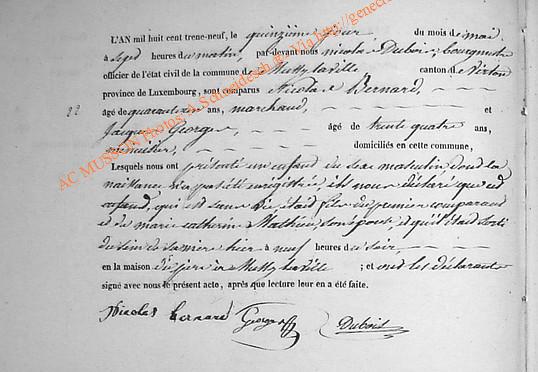 L'AN mil huit cent trente-neuf, le quinzième jour du mois de mai
à sept heures du matin, par-devant nous nicolas Dubois, bourgmestre
officier de l'état civil de la commune de Mussy la ville canton de Virton
province de Luxembourg, sont comparus Nicolas Bernard,
âgé de quarante ans, marchand, et
Jacques George, âgé de trente quatre ans,
menuisier, domiciliés en cette commune,
Lesquels nous ont présenté un enfant du sexe masculin dont la
naissance n'a pas été enrégistrée, ils nous déclaré que cet
enfant, qui est sans vie était fils du premier comparant
et de marie catherine Mathieu, son épouse, et qu'il était sorti
du sein de sa mère hier à neuf heures du soir,
en la maison du père à Mussy la ville ; et ont les déclarants
signé avec nous le présent acte, après que lecture leur en a été faite.
Nicolas Bernard George Dubois
22
AC MUSSON Photos: A. Schaudesch Via http://genec